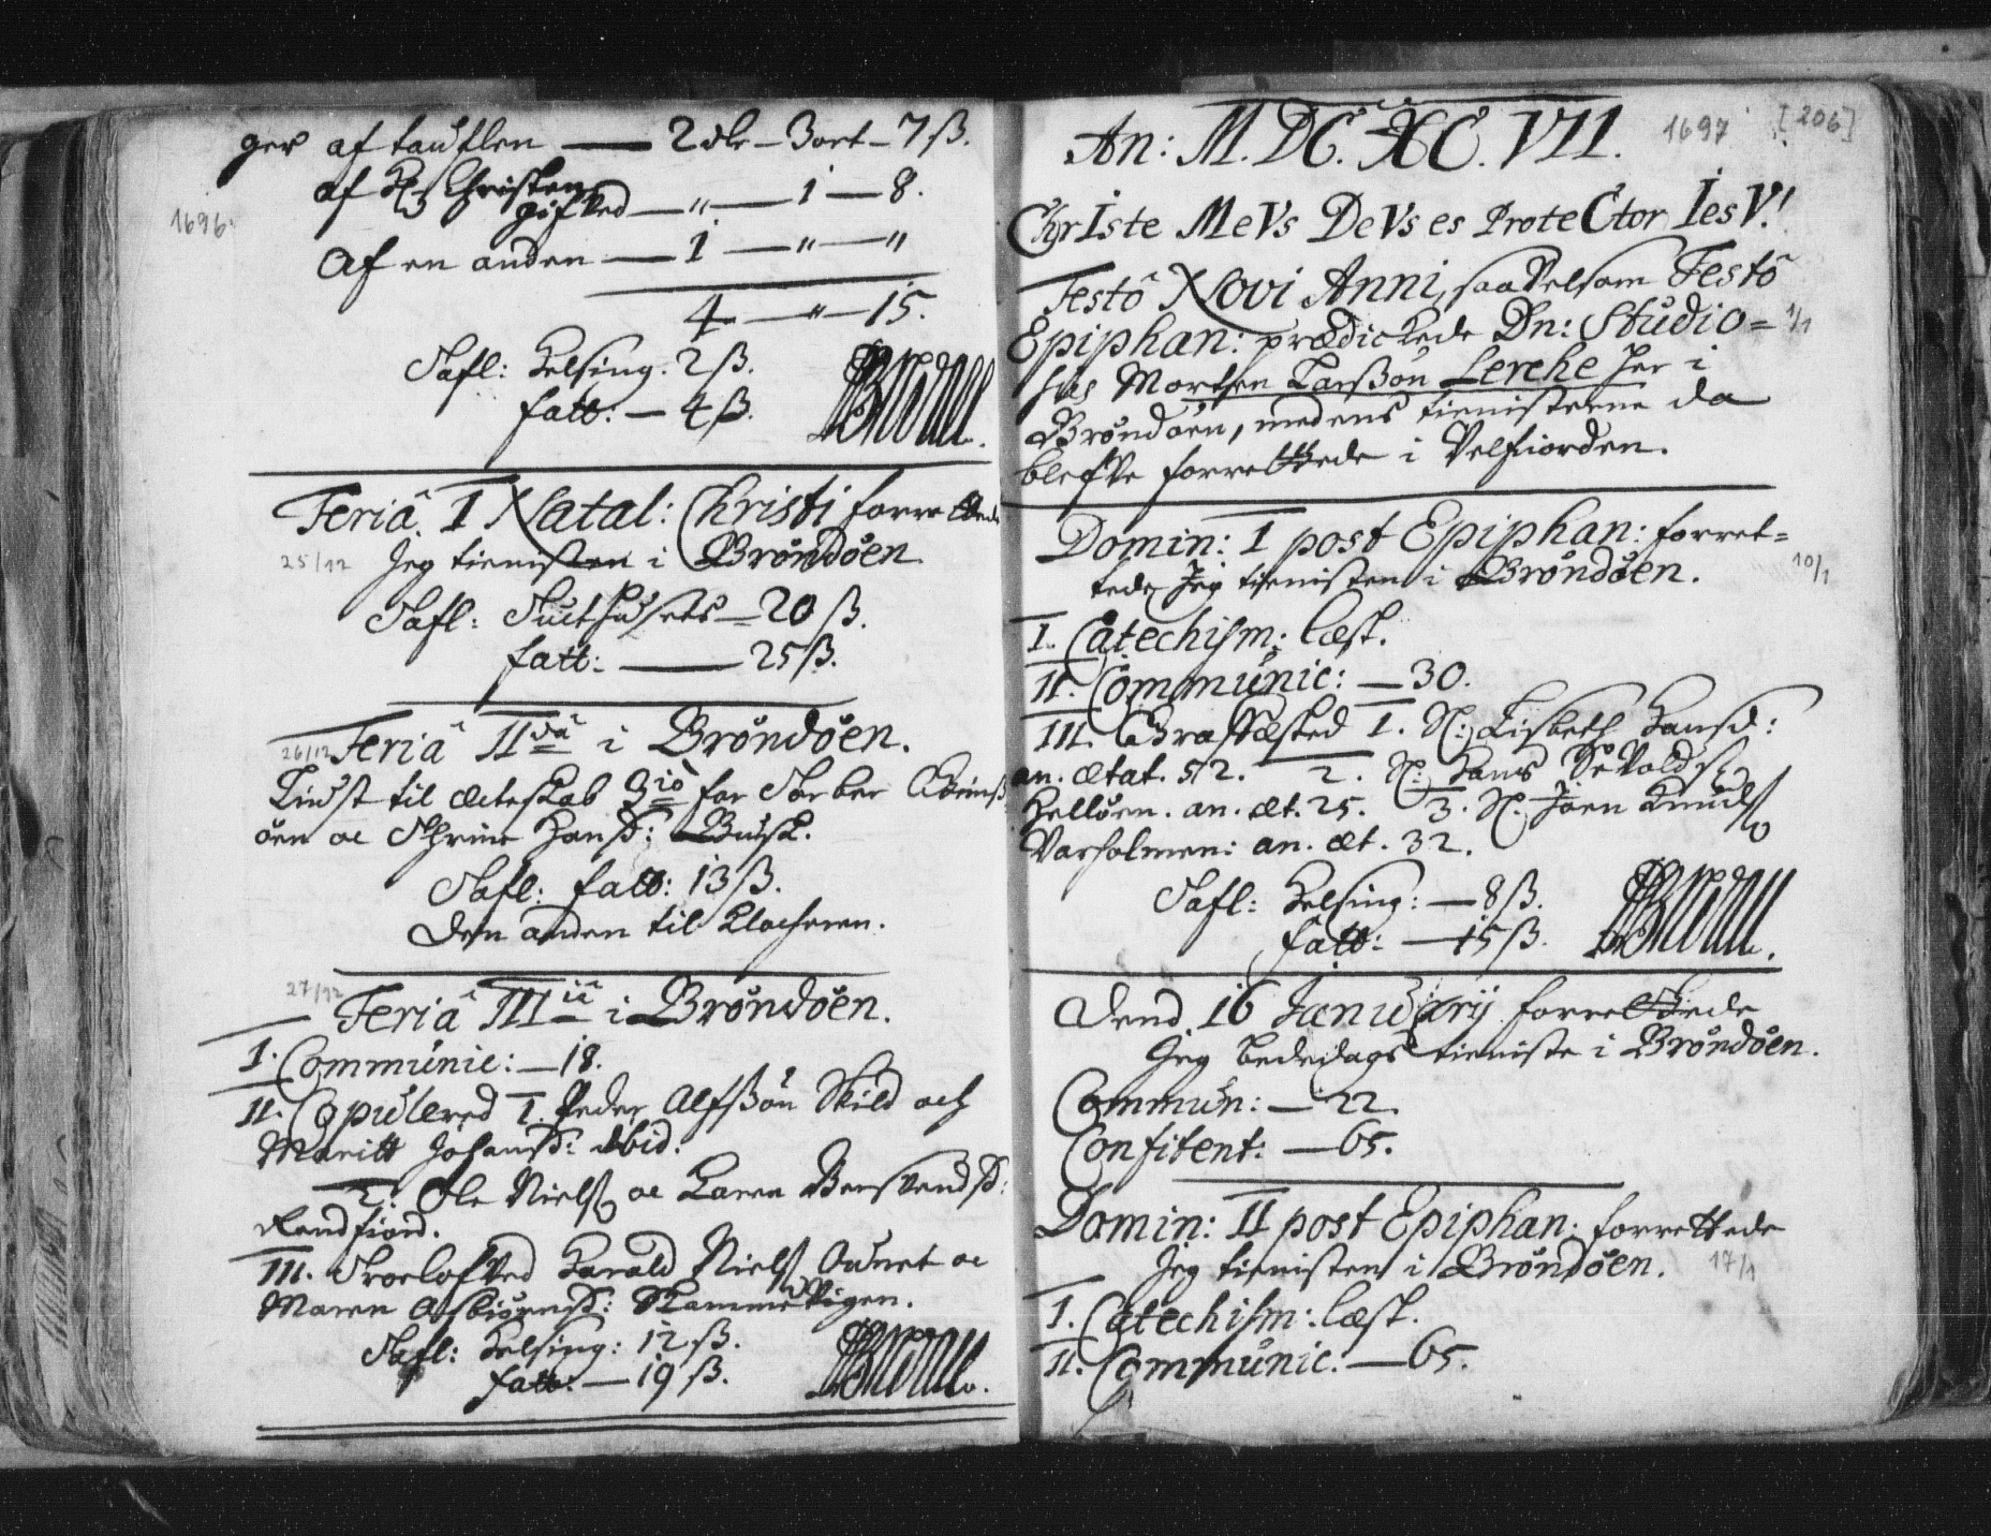 ger af tauflen — 2 dlr — 3 ort — 7 ß.
af Christen
gifved — " — 1 — 8.
1696.
Af en anden — 1 — " — "
4 — " — 15.
Tafl: Helsing. 2 ß.
fatt: — 4 ß.
Feriâ I Natal: Christi forrettede
25/12 Jeg tienisten i Brøndøen
Tafl: Tuchthusets — 20 ß.
fatt: — 25 ß.
Feriâ IIdâ i Brøndøen.
26/12
Liust til æcteskab 3io for Torber
øen oc Thrine Hansd: Busk.
Tafl: fatt: 13 ß.
Den anden til Klocheren.
27/12
Feriâ IIIiâ i Brøndøen.
I. Communic: — 18.
II. Copulered 1. Peder Alfsøn Skild och
Maritt Johansd: ibid.
2. Ole Niels oc Karen Bersvendsd:
Rendfiord.
III. Troelofved Harald Niels oc
Maren Asbiørnsd: Skammevigen.
Tafl: Helsing: 12 ß.
fatt: — 19 ß.
An: M.DC.XC.VII. 1697 [206]
ChrIste MeVs DeVs es ProteCtor IesV!
Festô Novi Anni, saavelsom Festô
Epiphan: prædickede Dn: Studio= 1/1
sus Morthen Larssøn Lerche her i
Brøndøen, medens tienisterne da
blefve forrettede i Velfiorden.
Domin: I post Epiphan: forret=
tede Jeg tienisten i Brøndøen. 10/1
I. Catechism: læst.
II. Communic: — 30.
III. Graffæsted 1. Sl: Lisbeth Hansd:
an. ætat. 52. 2. Sl: Hans Sevolds
Helløen. an. æt. 25. 3. Sl. Joen Knuds
Varholmen: an. æt. 32.
Tafl: Helsing: — 8 ß.
fatt: — 15 ß.
Dend 16 Januarij forrettede
Jeg bededags tieniste i Brøndøen.
Commun: — 22.
Confitent: — 65.
Domin: II post Epiphan: forrettede
Jeg tienisten i Brøndøen. 17/1
I. Catechism: læst.
II. Communic: — 65.